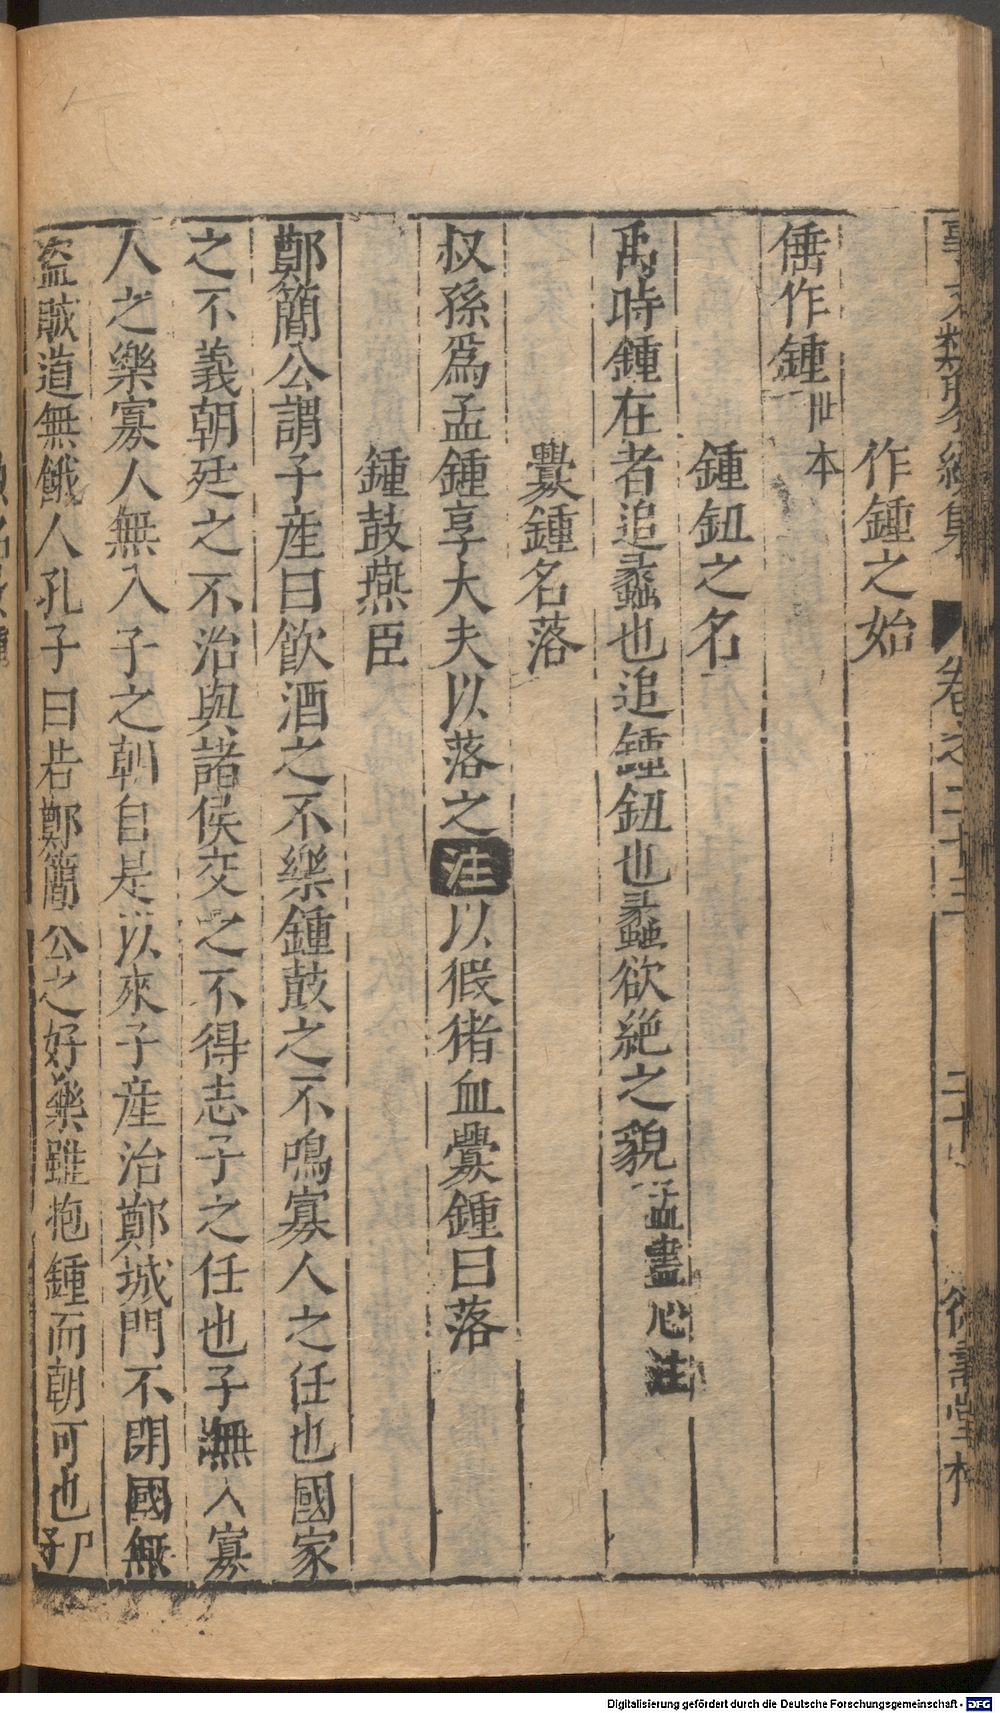 事文類聚續集 卷之二十三 二十 德壽堂梓
作鍾之始
倕作鍾世本
鍾鈕之名
禹時鍾在者追蠡也追鍾鈕也蠡欲絶之貌孟盡心注
釁鍾名落
叔孫爲孟鍾享大夫以落之注以猳猪血釁鍾曰落
鍾鼓燕臣
鄭簡公謂子産曰飲酒之不樂鍾鼓之不鳴寡人之任也國家
之不義朝廷之不治與諸侯交之不得志子之任也子無入寡
人之樂寡人無入子之朝自是以來子産治鄭城門不閉國無
盗賊道無餓人孔子曰若鄭簡公之好樂雖抱鍾而朝可也
Digitalisierung gefördert durch die Deutsche Forschungsgemeinschaft - DFG